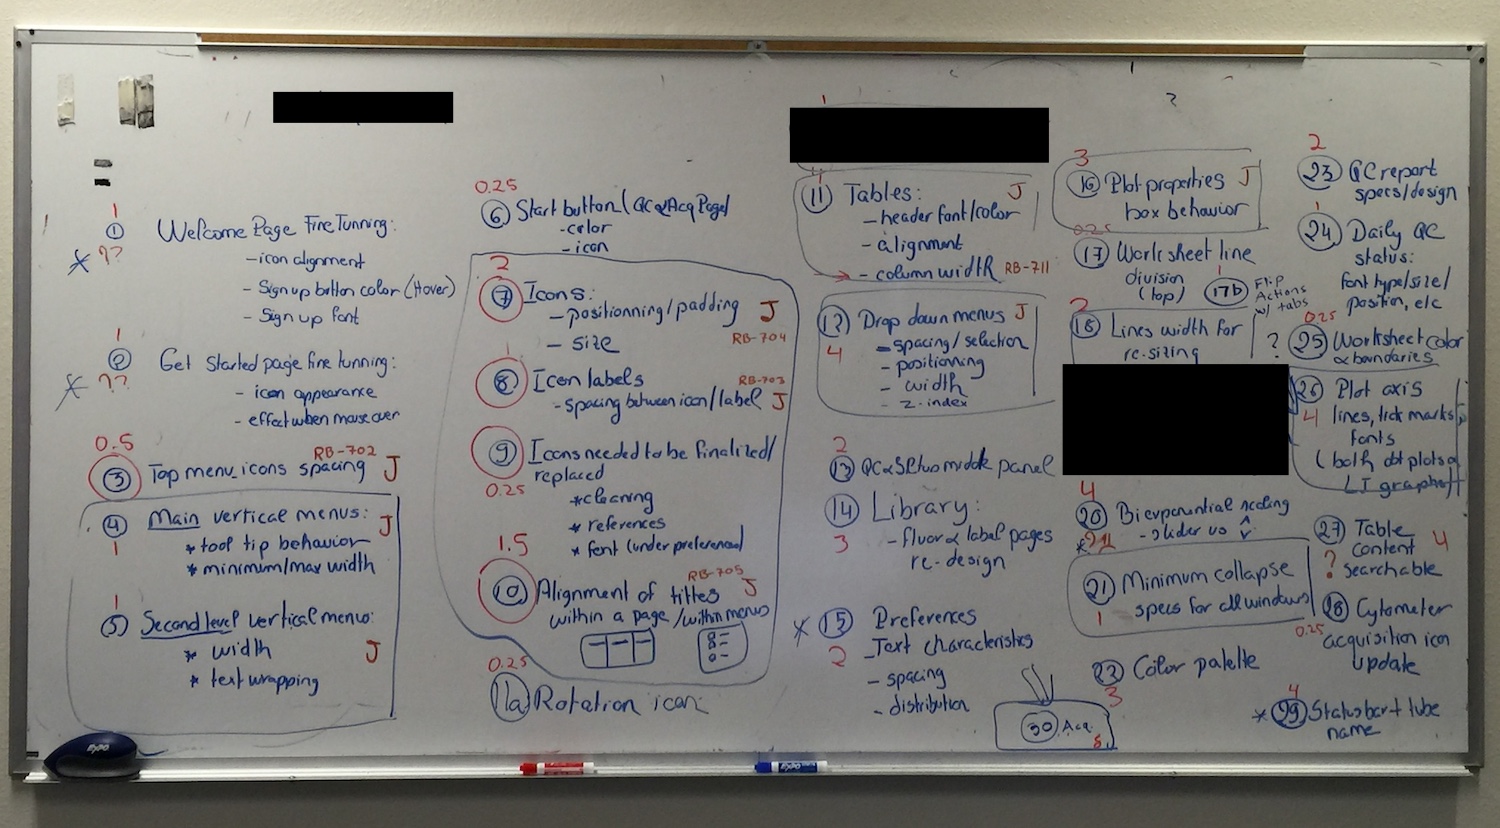 1
① Welcome Page Fine Tunning:
* ??
- icon alignment
- Sign up button color (Hover)
- Sign up font
1
② Get Started page fine tunning:
* ??
- icon appearance
- effect when mouse over
0.5
RB-702
③ Top menu icons spacing J
④ Main vertical menus: J
1
* tool tip behavior
* minimum/max width
1
⑤ Second level vertical menu:
* width J
* text wrapping
0.25
⑥ Start button (QC & Acq Page)
- color
- icon
2
⑦ Icons:
- positionning/padding J
RB-704
- size
1
⑧ Icon labels RB-703
- spacing between icon/label J
⑨ Icons needed to be finalized/
replaced
0.25
* cleaning
* references
* font (under preferences)
1.5
RB-705
⑩ Alignment of titles J
within a page/within menus
0.25
11a Rotation icon
1
1
⑪ Tables: J
- header font/color
- alignment
→ - column width RB-711
⑫ Drop down menus J
4
- spacing/selection
- positionning
- width
- z-index
2
⑬ QC & Setup middle panel
⑭ Library:
3
- fluor & label pages
re-design
* ⑮ Preferences
2
- Text characteristics
- spacing
- distribution
30 Acq.
8
?
3
⑯ Plot properties J
box behavior
0.25
⑰ Worksheet line
division
(top)
1
17b Flip
Actions
w/ tabs
2
⑱ Lines width for
re-sizing
?
4
⑳ Biexponential scaling
- slider vs ^ v
*
21 Minimum collapse
specs for all windows
1
22 Color palette
3
2
23 QC report
specs/design
1
24 Daily QC
status:
font type/size/
position, etc
0.25
25 Worksheet color
& boundaries
26 Plot axis
4
lines, tick marks,
fonts
(both dot plots &
27 Table
content 4
? searchable
28 Cytometer
0.25
acquisition icon
update
4
* 99 Status bar + tube
name
EXPO